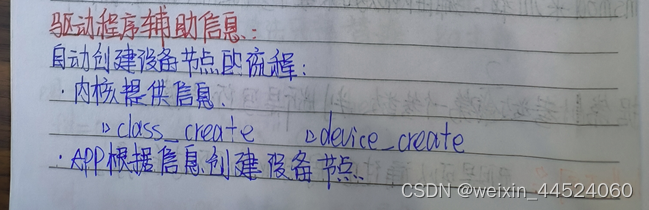 驱动程序辅助信息:
自动创建设备节点的流程:
·内核提供信息.
▷class_create ▷device_create
·APP根据信息创建设备节点.
CSDN @weixin_44524060